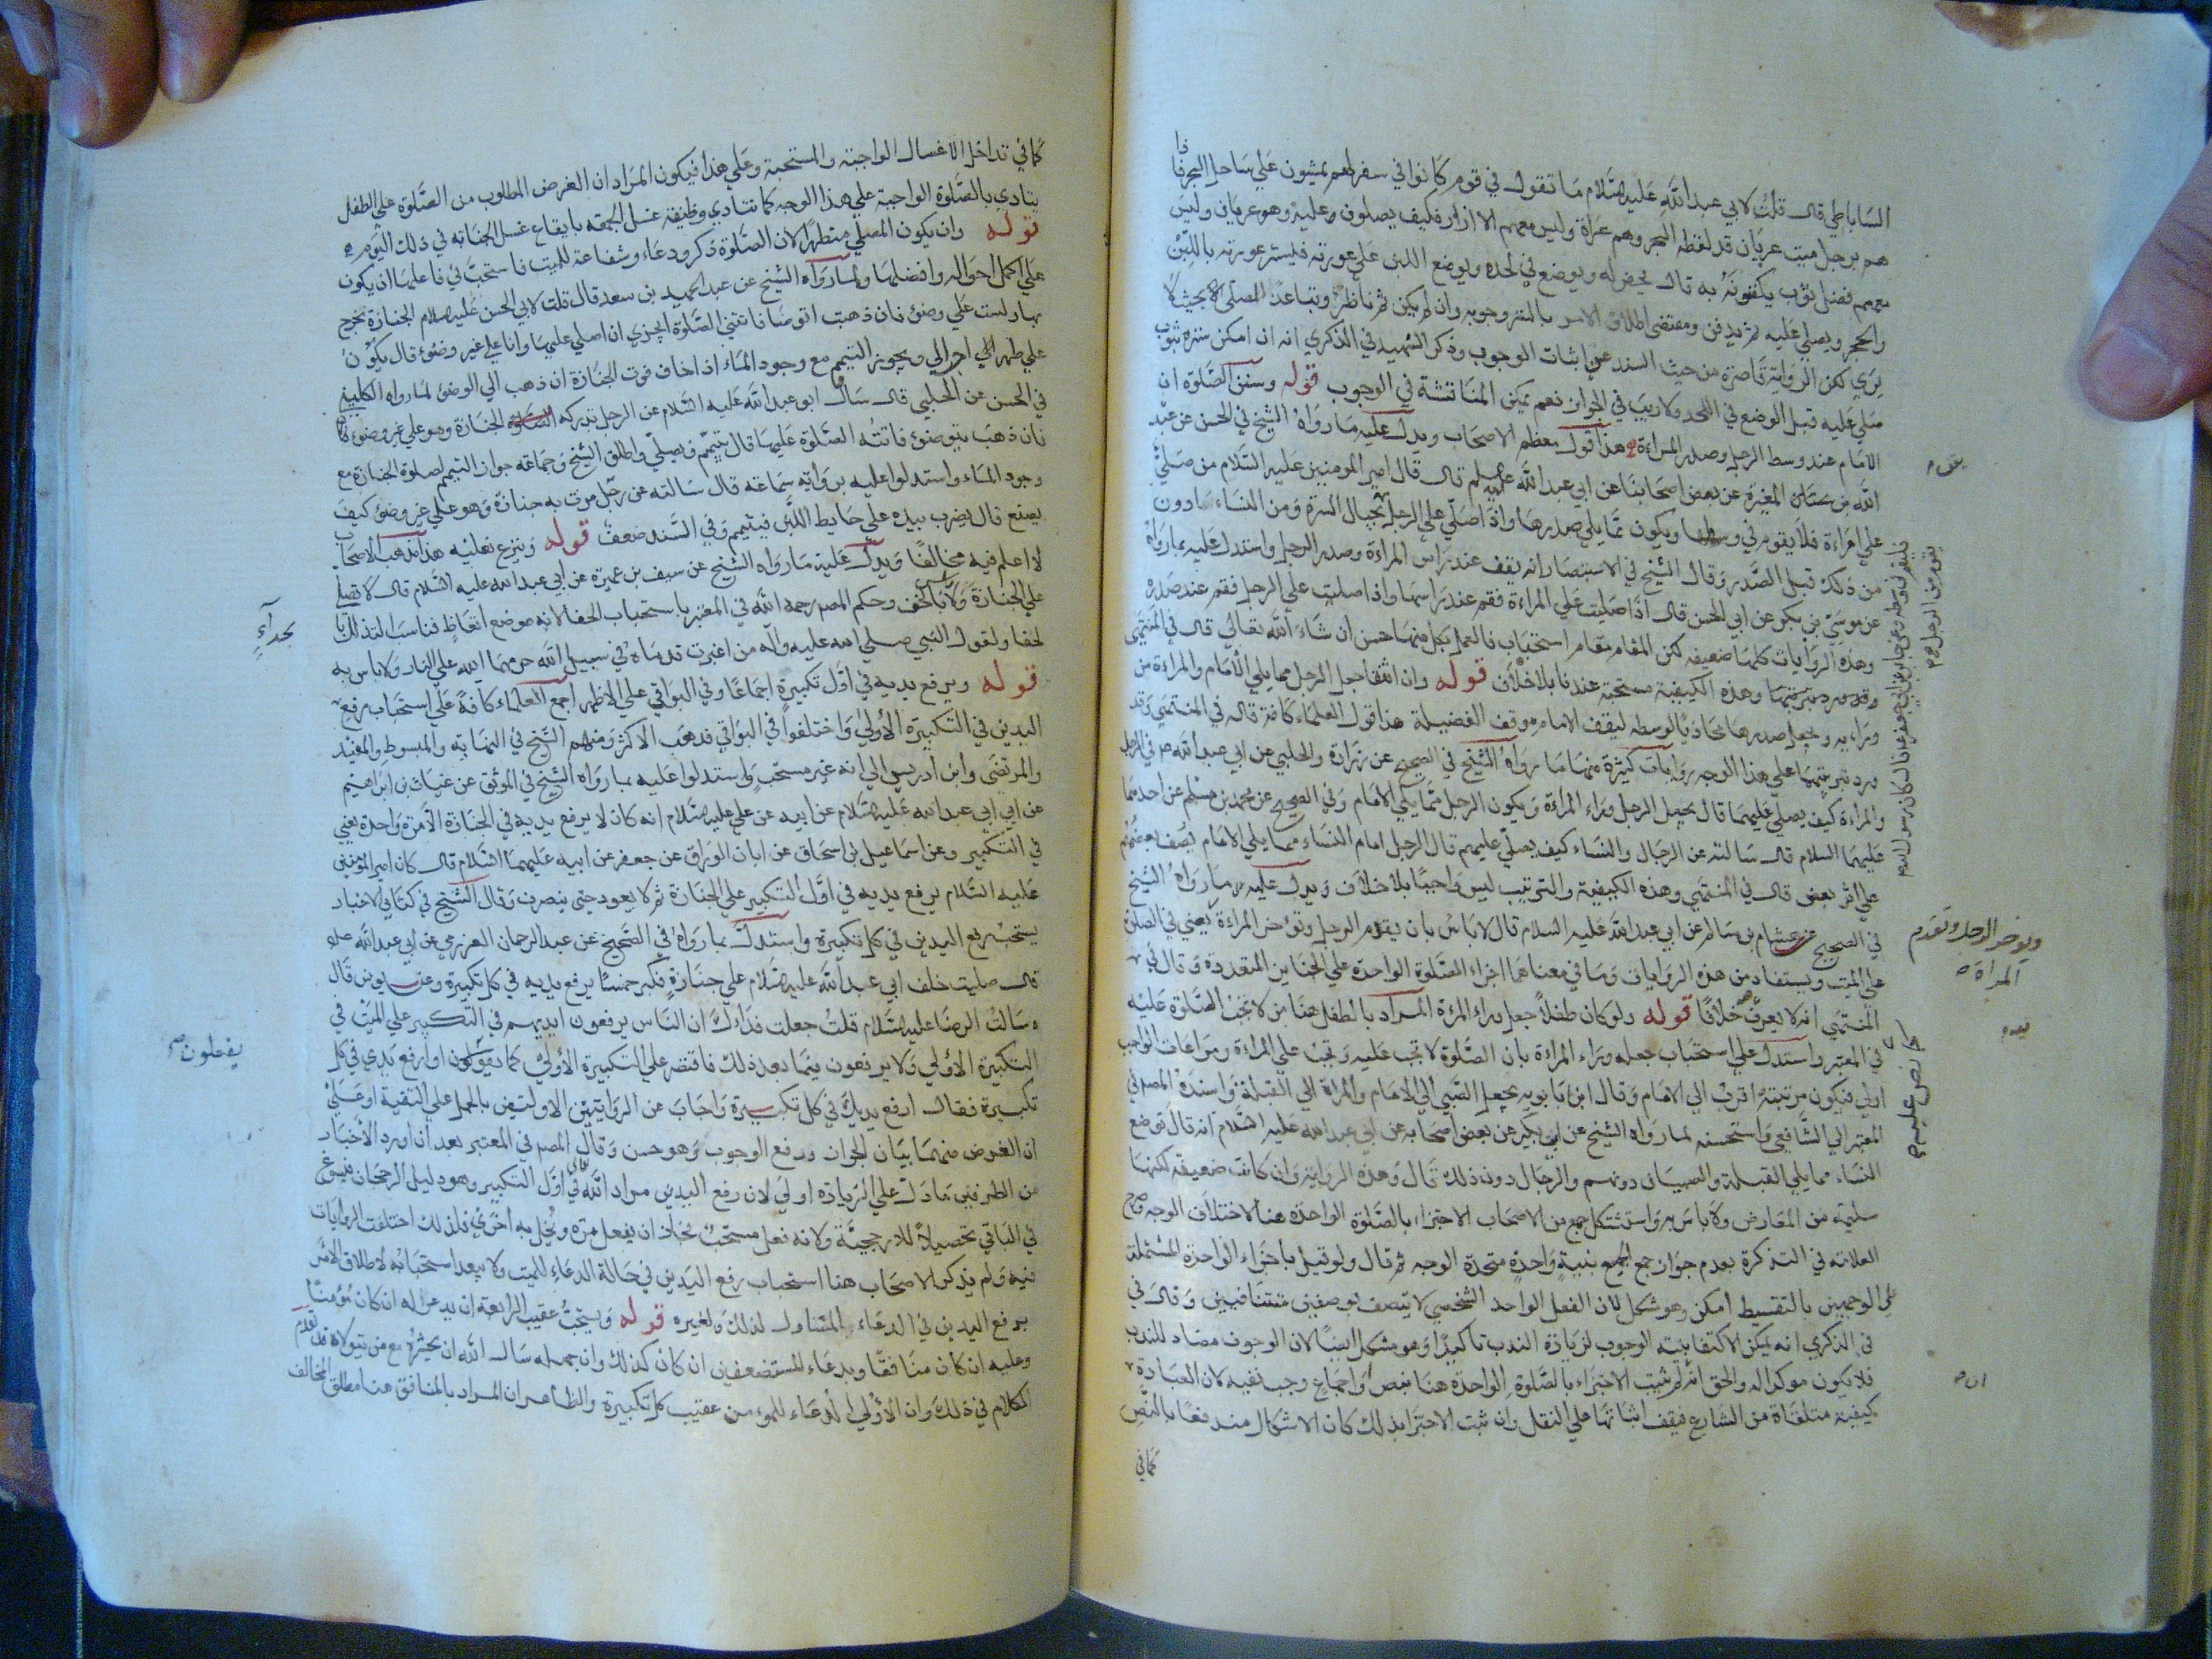 الساباطي قال قلت لابي عبد الله عليه السلام ما تقول في قوم كانوا في سفر لهم يمشون علي ساحل البحر فاذا
هم برجل ميت عريان قد لفظه البحر وهم عراة وليس معهم الا ازار فكيف يصلون عليه وهو عريان وليس
معهم فضل ثوب يكفنونه به قال يحفر له ويوضع في لحده ويوضع اللبن علي عورته فيستر عورته باللبن
والحجر ويصلي عليه ثم يدفن ومقتضى اطلاق الامر بالستر وجوبه وان لم يكن ثم ناظر وتباعد المصلي بحيث لا
يري لكن الرواية قاصرة من حيث السند عن اثبات الوجوب وذكر الشهيد في الذكري انه ان امكن ستره بثوب
صلي عليه قبل الوضع في اللحد ولا ريب في الجواز نعم يمكن المناقشة في الوجوب قوله وسنن الصلوة ان
الامام عند وسط الرجل وصدر المراءة هذا قول معظم الاصحاب ويدل عليه ما رواه الشيخ في الحسن عن عبد
يقف
الله بن المغيرة عن بعض اصحابنا عن ابي عبد الله عليه السلم قال قال امير المومنين عليه السلام من صلي
علي امراءة فلا يقوم في وسطها ويكون مما يلي صدرها واذا صلي علي الرجل بحيال السرة ومن النساء دون
من ذلك قبل الصدر وقال الشيخ في الاستبصار انه يقف عند راس المراءة وصدر الرجل واستدل عليه بما رواه
عن موسي بن بكر عن ابي الحسن قال اذا صليت علي المراءة فقم عند راسها واذا صليت علي الرجل فقم عند صدره
وهذه الروايات كلها ضعيفه لكن المقام مقام استحباب فالعمل بكل منها حسن ان شاء الله تعالي قال في المنتهي
وهذه الكيفية مستحبة عندنا بلا خلاف قوله وان اتفقا جعل الرجل مما يلي الامام والمراءة من
ورائه ويجعل صدرها محاذيا لوسطه ليقف الامام موقف الفضيلة هذا قول العلماء كافة قاله في المنتهي وقد
ورد بترتيبهما علي هذا الوجه روايات كثيرة منها ما رواه الشيخ في الصحيح عن زرارة والحلبي عن ابي عبد الله في الرجل
والمراءة كيف يصلي عليهما قال يجعل الرجل وراء المراءة ويكون الرجل مما يلي الامام وفي الصحيح عن محمد بن مسلم عن احدهما
عليهما السلام قال سالته عن الرجال والنساء كيف يصلي عليهم قال الرجل امام النساء مما يلي الامام يصف بعضهم
علي اثر بعض قال في المنتهي وهذه الكيفية والترتيب ليس واجبا بلا خلاف ويدل عليه ما رواه الشيخ
في الصحيح عن هشام بن سالم عن ابي عبد الله عليه السلام قال لا باس بان يقدم الرجل وتؤخر المراءة يعني في الصلوة
ويوخر الرجل وتقدم
المراة
علي الميت ويستفاد من هذه الروايات وما في معناها اجزاء الصلوة الواحدة علي الجنايز المتعددة وقال في
المنتهي انه لا يعرف خلافا قوله ولو كان طفلا جعل وراء المرءة المراد بالطفل هنا من لا تجب الصلوة عليه
في المعتبر واستدل علي استحباب جعله وراء المراءة بان الصلوة لا تجب عليه وتجب علي المراءة ومراعات الواجب
اولي فتكون مرتبته اقرب الي الامام وقال ابن بابويه يجعل الصبي الي الامام والمراة الي القبلة واسنده المصر في
المعتبر الي الشافعي واستحسنه لما رواه الشيخ عن ابن بكير عن بعض اصحابه عن ابي عبد الله عليه السلام انه قال توضع
النساء مما يلي القبلة والصبيان دونهم والرجال دون ذلك قال وهذه الرواية وان كانت ضعيفة لكنها
سليمة من المعارض ولا باس به واستشكل جمع من الاصحاب الاجتزاء بالصلوة الواحدة هنا لاختلاف الوجه
العلامة في التذكرة بعدم جواز جمع الجميع بنية واحدة متحدة الوجه ثم قال ولو قيل باجزاء الواحدة المشتملة
علي الوجهين بالتقسيط امكن وهو مشكل لان الفعل الواحد الشخصي لا يتصف بوصفين متنافيين وقال في
في الذكري انه يمكن الاكتفا بنية الوجوب لزيادة الندب تاكيدا وهو مشكل ايضا لان الوجوب مضاد للندب
فلا يكون موكدا له والحق انه لم يثبت الاجتزاء بالصلوة الواحدة هنا بنص او اجماع وجب نفيه لان العبادة
ان
كيفية متلقاة من الشارع فيقف اثباتها علي النقل وان ثبت الاجتزا بذلك كان الاشكال مندفعا بالنص
كما في
كما في تداخل الاغسال الواجبة والمستحبة وعلي هذا فيكون المراد ان الغرض المطلوب من الصلوة علي الطفل
يتادي بالصلوة الواجبة علي هذا الوجه كما تتادي وظيفة غسل الجمعه بايقاع غسل الجنابة في ذلك اليوم
قوله وان يكون المصلي متطهرا لان الصلوة ذكر ودعاء وشفاعة للميت فاستحب في فاعلها ان يكون
علي اكمل احواله وافضلها ولما رواه الشيخ عن عبد الحميد بن سعد قال قلت لابي الحسن عليه السلام الجنازة يخرج
بها ولست علي وضوء فان ذهبت اتوضا فاتتني الصلوة ايجزي ان اصلي عليها وانا علي غير وضوء قال يكون
علي طهر احب الي ويجوز التيمم مع وجود الماء اذا خاف فوت الجنازة ان ذهب الي الوضوء لما رواه الكليني
في الحسن عن الحلبي قال سال ابو عبد الله عليه السلام عن الرجل تدركه الجنازة وهو علي غير وضوء
فان ذهب يتوضوء فاتته الصلوة عليها قال يتيمم ويصلي واطلق الشيخ وجماعة جواز التيمم لصلوة الجنازة مع
وجود الماء واستدلوا عليه برواية سماعة قال سالته عن رجل مرت به جنازة وهو علي غير وضوء كيف
يصنع قال يضرب بيده علي حايط اللبن فيتيمم وفي السند ضعف قوله وينزع نعليه هذا مذهب الاصحاب
لا اعلم فيه مخالفا ويدل عليه ما رواه الشيخ عن سيف بن عميرة عن ابي عبد الله عليه السلام قال لا تصلي
علي الجنازة ولا باس بالخف وحكم المصر رحمه الله في المعتبر باستحباب الحفا لانه موضع اتعاظ فناسب التذلل با
بحذاء
لحفا ولقول النبي صلي الله عليه واله من اغبرت قدماه في سبيل الله حرمهما الله علي النار ولا باس به
قوله ويرفع يديه في اول تكبيرة اجماعا وفي البواقي علي الاظهر اجمع العلماء كافة علي استحباب رفع
اليدين في التكبيرة الاولي واختلفوا في البواقي فذهب الاكثر ومنهم الشيخ في النهاية والمبسوط والمفيد
والمرتضي وابن ادريس الي انه غير مستحب واستدلوا عليه بما رواه الشيخ في الموثق عن غياث بن ابراهيم
عن ابي عبد الله عليه السلام عن ابيه عن علي عليه السلام انه كان لا يرفع يديه في الجنازة الا مرة واحدة يعني
في التكبير وعن اسماعيل بن اسحاق عن ابان الوراق عن جعفر عن ابيه عليهما السلام قال كان امير المؤمنين
عليه السلام يرفع يديه في اول التكبير علي الجنازة ثم لا يعود حتي ينصرف وقال الشيخ في كتابي الاخبار
يستحب رفع اليدين في كل تكبيرة واستدل بما رواه في الصحيح عن عبد الرحمان العزرمي عن ابي عبد الله
قال صليت خلف ابي عبد الله عليه السلام علي جنازة فكبر خمسا يرفع يديه في كل تكبيرة وعن يونس قال
سالت الرضا عليه السلام قلت جعلت فداءك ان الناس يرفعون ايديهم في التكبير علي الميت في
التكبيرة الاولي ولا يرفعون فيما بعد ذلك فاقتصر علي التكبيرة الاولي كما يفعلون او ارفع يدي في كل
يفعلون صح
تكبيرة فقال ارفع يديك في كل تكبيرة واجاب عن الروايتين الاولتين بالحمل علي التقية او علي
ان الغرض منهما بيان الجواز ورفع الوجوب وهو حسن وقال المصر في المعتبر بعد ان اورد الاخبار
من الطرفين ما دل علي الزيادة اولي لان رفع اليدين مراد الله في اول التكبير وهو دليل الرجحان فيسوغ
في الباقي تحصيلا للارجحية ولانه فعل مستحب فجاز ان يفعل مرة ويخل به اخري فلذلك اختلفت الروايات
فيه ولم يذكر الاصحاب هنا استحباب رفع اليدين في حالة الدعاء للميت ولا يبعد استحبابه لاطلاق الامر
برفع اليدين في الدعاء المتناول لذلك ولغيره قوله ويستحب عقيب الرابعة ان يدعو له ان كان مؤمنا
وعليه ان كان منافقا وبدعاء المستضعفين ان كان كذلك وان جهله سال الله ان يحشره مع من يتولاه قد تقدم
الكلام في ذلك وان الاولي الدعاء للمومن عقيب كل تكبيرة والظاهر ان المراد بالمنافق هنا مطلق المخالف